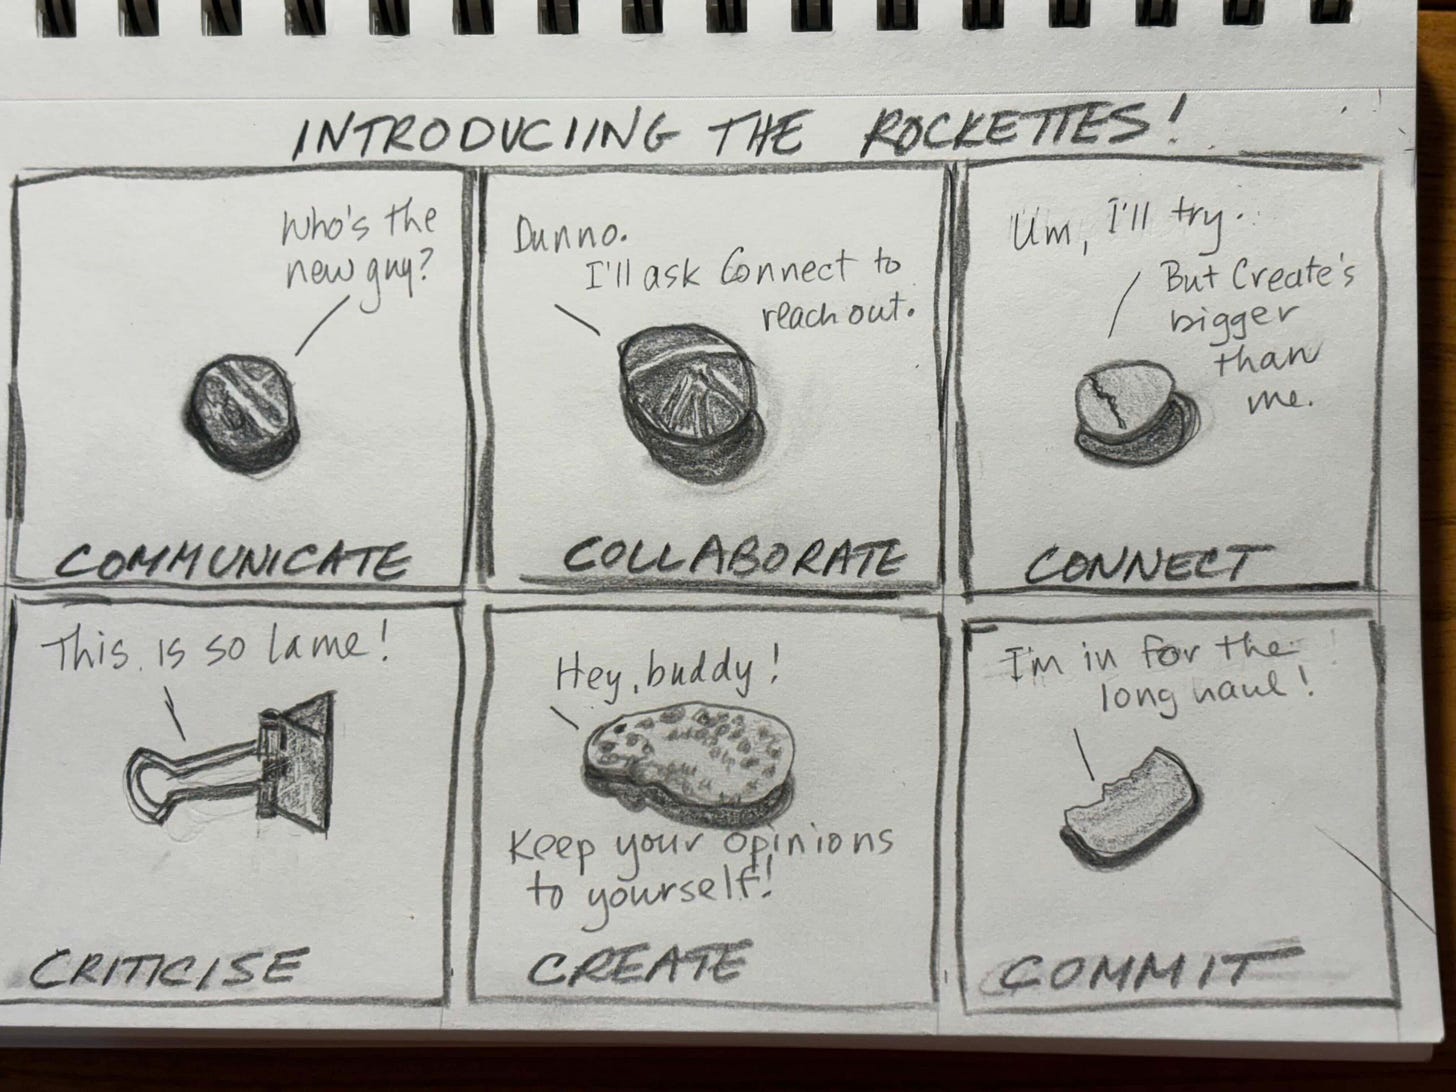 INTRODUCIING THE ROCKETTES!
Who's the
new guy?
COMMUNICATE
Dunno.
I'll ask Connect to
reach out.
COLLABORATE
Um, I'll try.
But Create's
bigger
than
me.
CONNECT
This is so lame!
CRITICISE
Hey, buddy!
Keep your opinions
to yourself!
CREATE
I'm in for the
long haul!
COMMIT